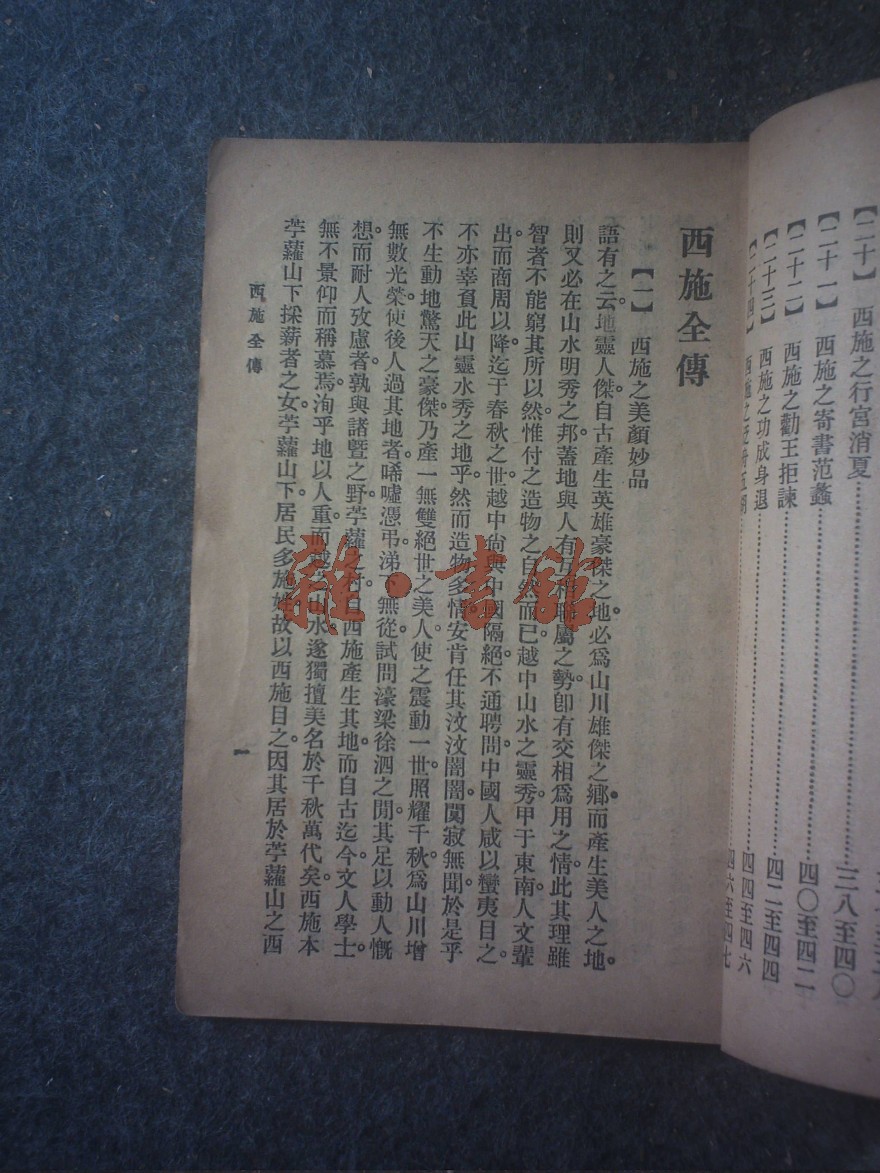 【二十】　西施之行宮消夏……………三八至四〇
【二十一】　西施之寄書范蠡……………四〇至四二
【二十二】　西施之勸王拒諫……………四二至四四
【二十三】　西施之功成身退……………四四至四六
【二十四】　西施之泛舟五湖……………四六至四七
西施全傳
【一】　西施之美顏妙品
語有之云。地靈人傑。自古產生英雄豪傑之地。必爲山川雄傑之鄉。而產生美人之地。
則又必在山水明秀之邦。蓋地與人有互相聯屬之勢。卽有交相爲用之情。此其理雖
智者不能窮其所以然。惟付之造物之自然而已。越中山水之靈秀。甲于東南。人文輩
出。而商周以降。迄于春秋之世。越中尙與中國隔絕。不通聘問。中國人咸以蠻夷目之。
不亦辜負此山靈水秀之地乎。然而造物多情。安肯任其汶汶闇闇。闃寂無聞。於是乎
不生動地驚天之豪傑。乃產一無雙絕世之美人。使之震動一世。照耀千秋。爲山川增
無數光榮。使後人過其地者。唏噓憑弔。涕下無從。試問濠梁徐泗之閒。其足以動人慨
想而耐人攷慮者。孰與諸暨之野。苧蘿之村。自西施產生其地。而自古迄今。文人學士。
無不景仰而稱慕焉。洵乎地以人重。而越之山水。遂獨擅美名於千秋萬代矣。西施本
苧蘿山下採薪者之女。苧蘿山下。居民多施姓。故以西施目之。因其居於苧蘿山之西
西施全傳
一
雜·書館